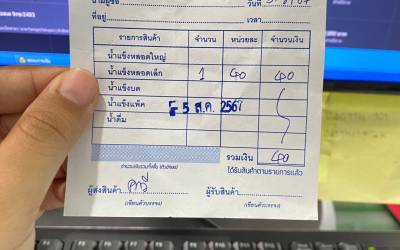 นามผู้ซื้อ
วันที่
ที่อยู่
เวลา
รายการสินค้า จำนวน หน่วยละ จำนวนเงิน
น้ำแข็งหลอดใหญ่
น้ำแข็งหลอดเล็ก 1 40 40
น้ำแข็งบด
น้ำแข็งแพ็ค 5 ส.ค. 2567
น้ำดื่ม
จำนวนเงินรวมทั้งสิ้น (ตัวอักษร) รวมเงิน 40
ได้รับสินค้าตามรายการแล้ว
ผู้ส่งสินค้า ผู้รับสินค้า
(เขียนตัวบรรจง) (เขียนตัวบรรจง)